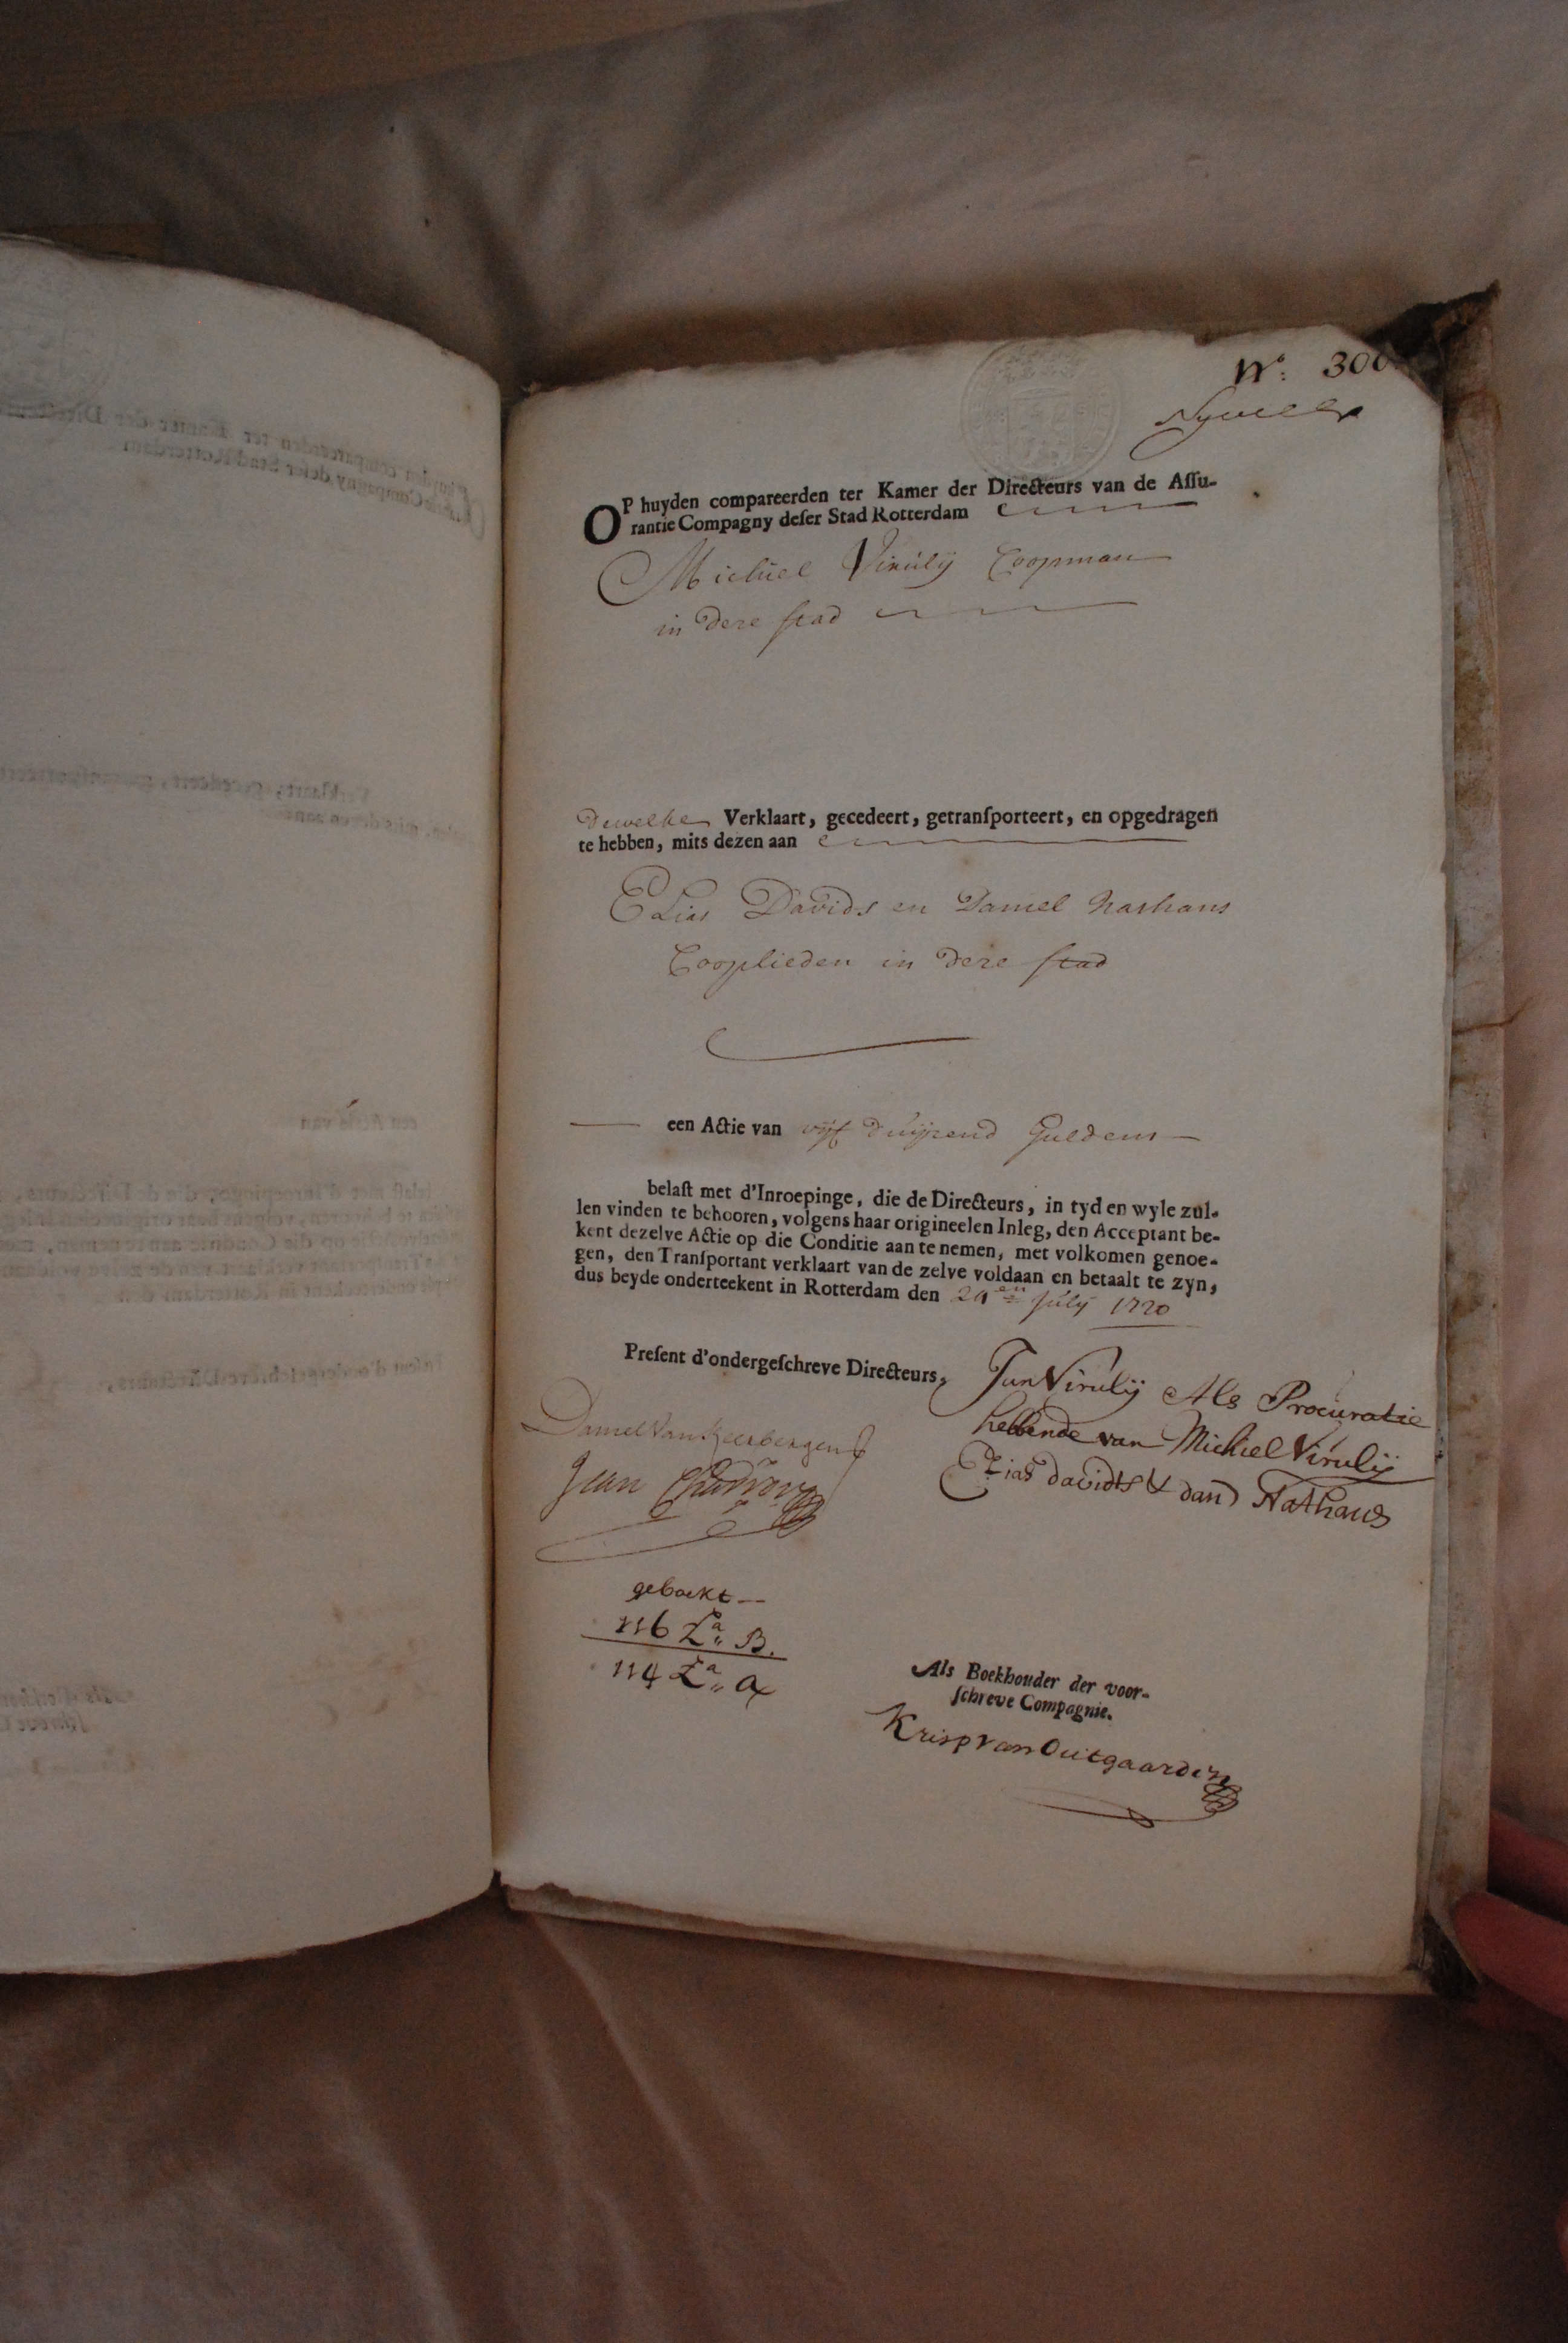 N.º 300
OP huyden compareerden ter Kamer der Directeurs van de Aſſu-
rantie Compagny deſer Stad Rotterdam
Michiel Virúlÿ Coopman
in deze ſtad
dewelke Verklaart, gecedeert, getranſporteert, en opgedragen
te hebben, mits dezen aan
Elias Davids en Daniel Nathans
Cooplieden in deze ſtad
een Actie van vijf duijzend Guldens
belaſt met d'Inroepinge, die de Directeurs, in tyd en wyle zul-
len vinden te behooren, volgens haar origineelen Inleg, den Acceptant be-
kent dezelve Actie op die Conditie aan te nemen, met volkomen genoe-
gen, den Tranſportant verklaart van de zelve voldaan en betaalt te zyn,
dus beyde onderteekent in Rotterdam den en Júlÿ 1720
Preſent d'ondergeſchreve Directeurs,
Jan Virulÿ Als Procuratie
hebbende van Michiel Virulÿ
Elias davidts & dan Nathans
Daniel Van
Jean
geboekt
116 L.a B.
114 L.a A
Als Boekhouder der voor-
ſchreve Compagnie.
Krisp van Outgaarden